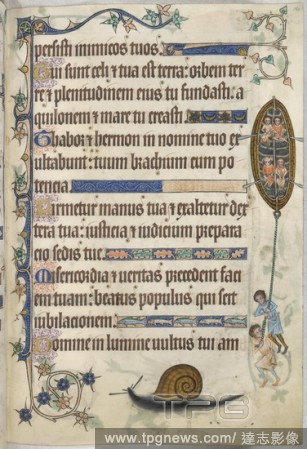 persisti inimicos tuos.
Tui sunt celi & tua est terra: orbem ter
re & plenitudinem eius tu fundasti: a
quilonem & mare tu creasti.
Thabor & hermon in nomine tuo ex
ultabunt: tuum brachium cum po
tencia.
Firmetur manus tua & exaltetur dex
tera tua: iusticia & iudicium prepara
cio sedis tue.
Misericordia & ueritas precedent faci
em tuam: beatus populus qui scit
iubilacionem.
Domine in lumine uultus tui am
TPG
www.tpgnews.com/ 達志影像